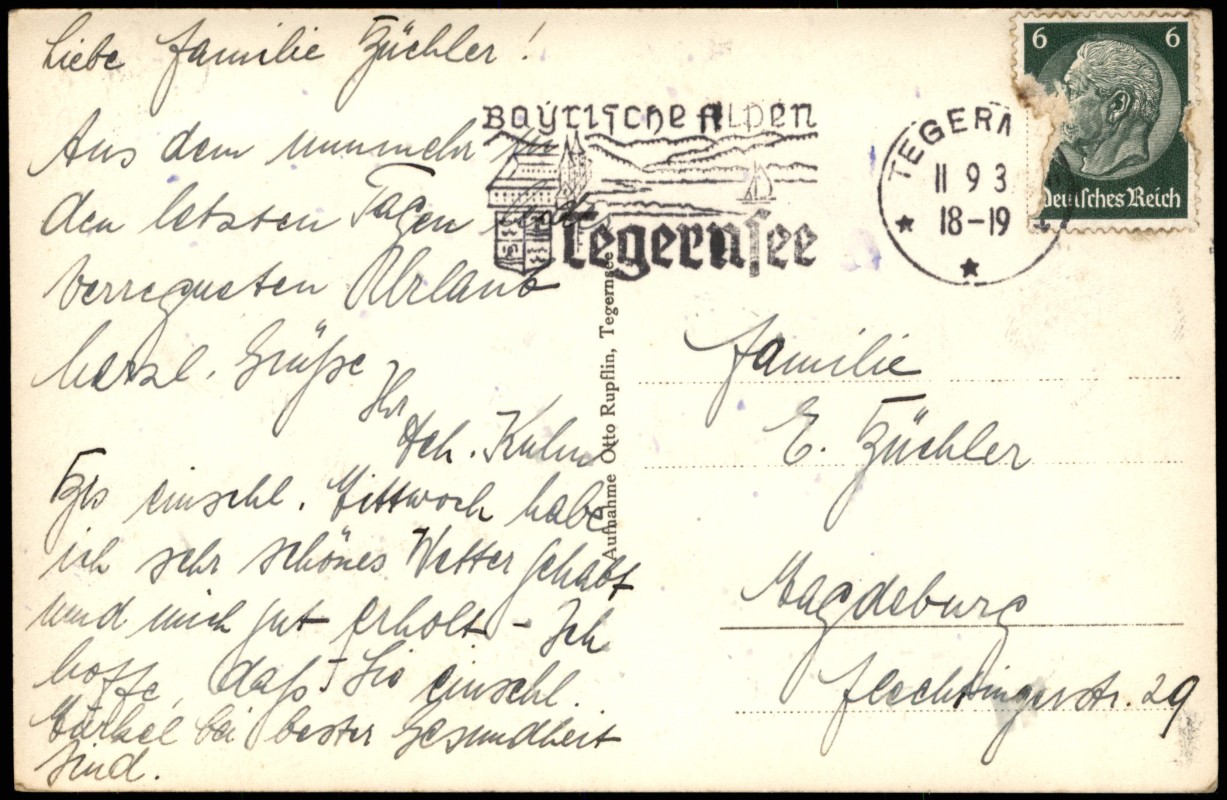 Liebe Familie Büchler!
Aus dem nunmehr in
den letzten Tagen
verregneten Urlaub
herzl. Grüße
Ihr
Hch. Kuhn
Bis einschl. Mittwoch habe
ich sehr schönes Wetter gehabt
und mich gut erholt - Ich
hoffe, daß Sie einschl.
bei bester Gesundheit
sind.
Bayrische Alpen
Tegernsee
TEGERN
11 9 3
18-19
6 6
Deutsches Reich
Aufnahme Otto Rupflin, Tegernsee
Familie
E. Büchler
Magdeburg
Flechtingerstr. 29